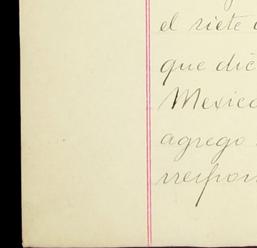 el siete
que dic
Mexico
agrego
rrespon